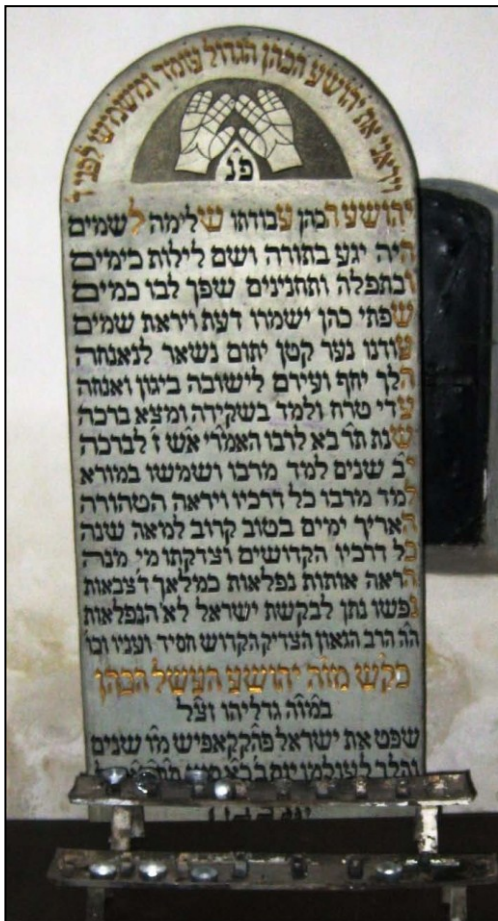 ויראני את יהושע הכהן הגדול עומד ומשמש לפני ד'
פנ
יהושע הכהן עבודתו שלימה לשמים
היה יגע בתורה ושם לילות כימים
ובתפלה ותחנינים שפך לבו כמים
שפתי כהן ישמרו דעת ויראת שמים
עודנו נער קטן יתום נשאר לנאנחה
הלך יחף ועירם לישובה ביגון ואנחה
עדי טרח ולמד בשקידה ומצא ברכה
שנת תר בא לרבו האמרי אש ז' לברכה
י"ב שנים למד מרבו ושמשו במורא
למד מרבו כל דרכיו ויראה הטהורה
האריך ימים בטוב קרוב למאה שנה
כל דרכיו הקדושים וצדקתו מי מנה
הראה אותות נפלאות כמילאך ד' צבאות
נפשו נתן לבקשת ישראל לא הנפלאות
הה הרב הגאון הצדיק הקדוש חסיד ועניו ובו'
כקש מו"ה יהושע העשל הכהן
במו"ה גדליהו וצ"ל
שפט את ישראל פהק קאפיש מ"ו שנים
והלך לעולמו